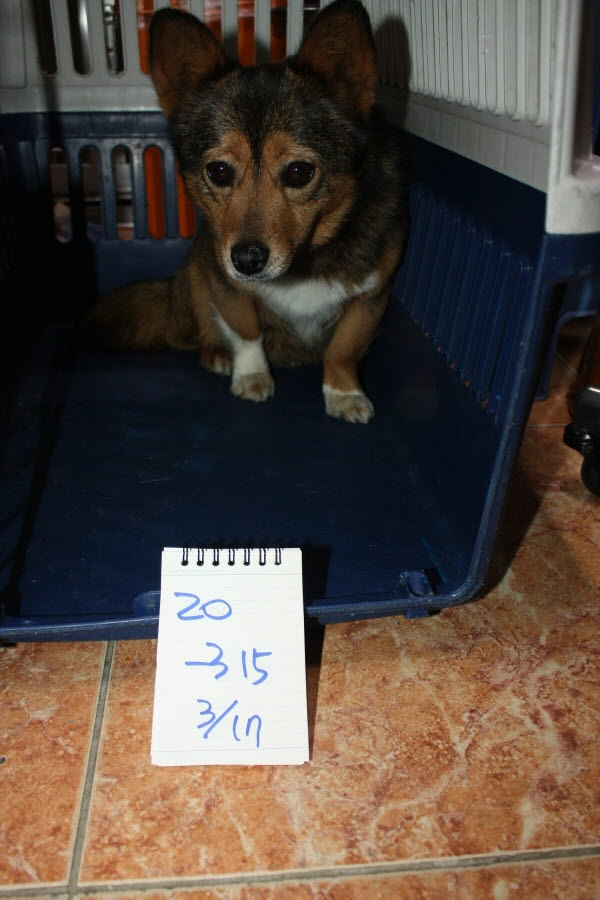 20
-315
3/17